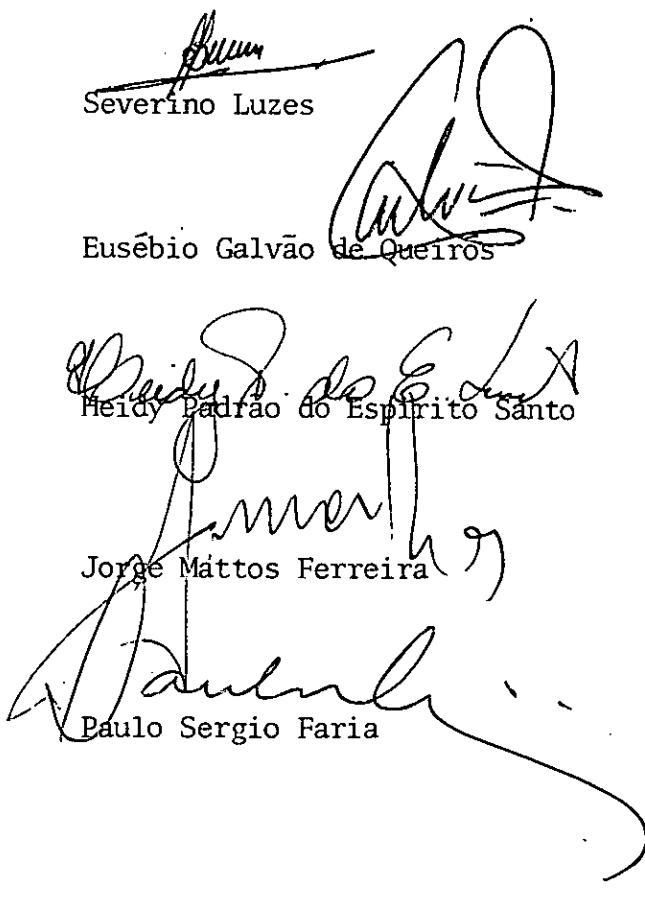 Severino Luzes
Eusébio Galvão de Queiros
Heidy P. do E. Santo
Heidy Padrão do Espírito Santo
Jorge Mattos Ferreira
Paulo Sergio Faria